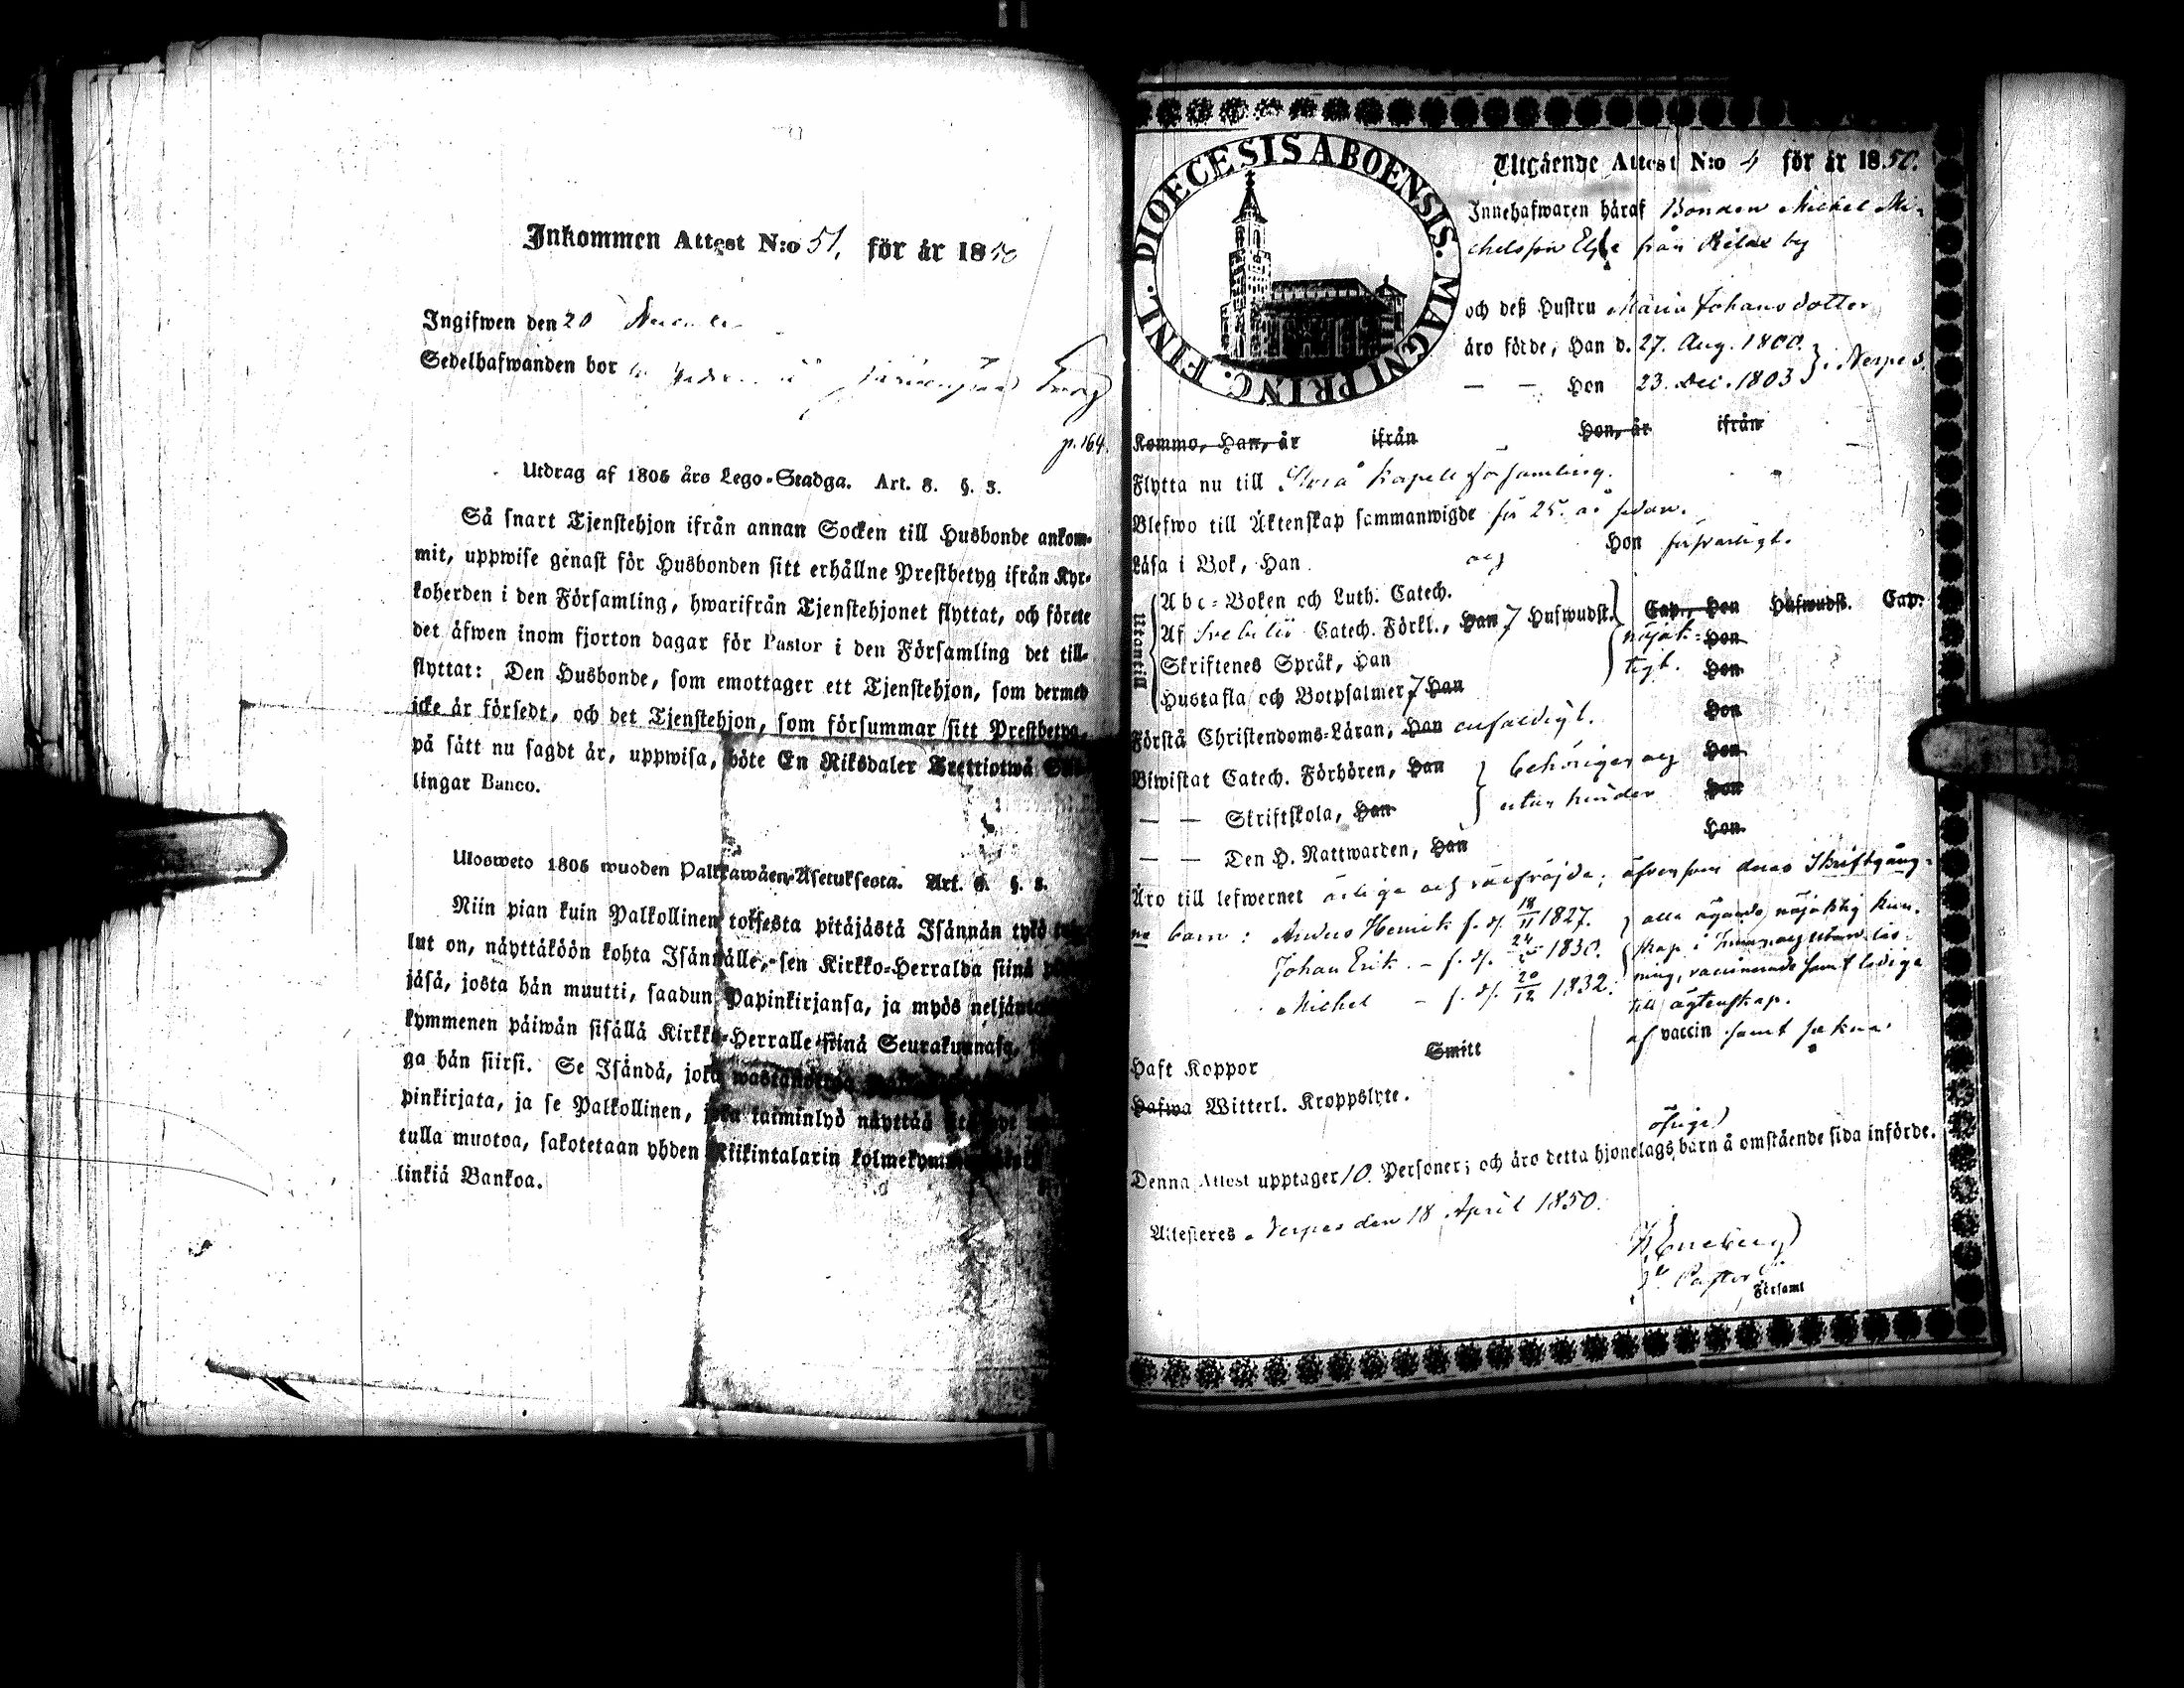 Inkommen Attest N:o 51. för år 1850
Ingifwen den 20
Sedelhafwanden bor
p. 164.
Utdrag af 1805 års Lego-Stadga. Art. 8. §. 3.
Så snart Tjenstehjon ifrån annan Socken till Husbonde ankom-
mit, uppwise genast för Husbonden sitt erhållne Prestbetyg ifrån Kyr-
koherden i den Församling, hwarifrån Tjenstehjonet flyttat, och förete
det äfwen inom fjorton dagar för Pastor i den Församling det till-
flyttat: Den Husbonde, som emottager ett Tjenstehjon, som dermed
icke är försedt, och det Tjenstehjon, som försummar sitt Prestbetyg,
på sätt nu sagdt är, uppwisa, böte En Riksdaler Trettiotwå
lingar Banco.
Ulosweto 1805 wuoden Palkkawäen-Asetuksesta. Art. 8. §. 3.
Niin pian kuin Palkollinen toisesta pitäjästä Isännän tykö
lut on, näyttäköön kohta Isännälle, sen Kirkko-Herralda siinä
jäsä, josta hän muutti, saadun Papinkirjansa, ja myös neljäntoi
kymmenen päiwän sisällä Kirkko-Herralle siinä Seurakunnasa,
ga hän siirsi. Se Isändä, joka wastanottaa
pinkirjata, ja se Palkollinen, joka laiminlyö näyttää
tulla muotoa, sakotetaan yhden Riikintalarin kolmekymm
linkiä Bankoa.
DIOECESIS ABOENSIS. MAGNI PRINC. FINL.
Utgående Attest N:o 4 för år 1850.
Innehafwaren häraf Bonden Michel Mi-
chelsson från by
och deß Hustru Maria Johansdotter
äro födde, Han d. 27. Aug. 1800.
— — Hon 23. Dec. 1803 } i Nerpes.
Kommo, Han, år ifrån Hon, år ifrån
Flytta nu till Kapell församling.
Blefwo till Äktenskap sammanwigde för 25. år sedan.
Läsa i Bok, Han och Hon försvarligt.
Utantill
Abc-Boken och Luth. Catech.
Af Svebelii Catech. Förkl., Han Hufwudst. Cap., Hon Hufwudst. Cap.
Skriftenes Språk, Han nöjak- Hon
Hustafla och Botpsalmer, Han tigt. Hon
Förstå Christendoms-Läran, Han enfaldigt. Hon
Biwistat Catech. Förhören, Han behörigen och Hon
— — Skriftskola, Han utan hinder Hon
— — Den H. Nattwarden, Han Hon
Äro till lefwernet ärliga och välfräjdade; äfvensom deras Skriftgång-
ne barn: Anders Henrik f. d. 18/11 1827. } alla ägande nöjaktig kun-
Johan Erik — f. d. 1830. skap i
Michel — f. d. 20/12 1832. ning, vaccinerade samt lediga
till ägtenskap.
Haft Koppor Smitt af vaccin samt sakna
Hafwa Witterl. Kroppslyte.
öfriga
Denna Attest upptager 10 Personer; och äro detta hjonelags barn å omstående sida införde.
Attesteres Nerpes den 18 April 1850.
Pastor
Församl